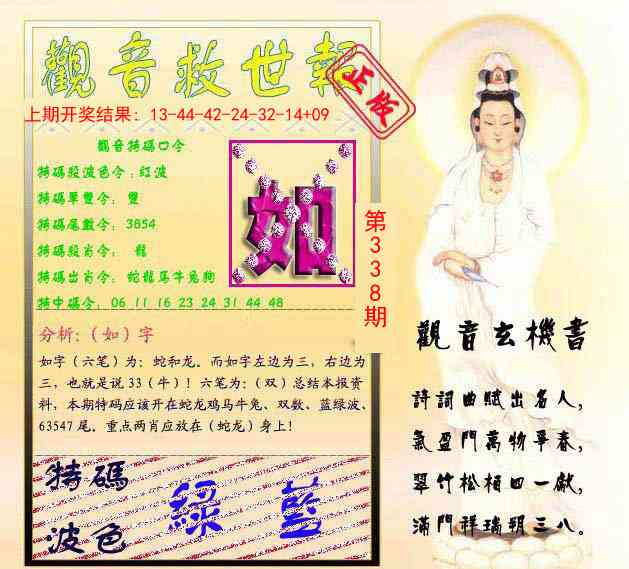 觀音救世報
正版
上期开奖结果：13-44-42-24-32-14+09
觀音特碼口令
特碼段波色令：红波
特碼單雙令： 雙
特碼尾數令： 3854
特碼段肖令： 龍
特碼出肖令： 蛇龍马牛兔狗
特中碼令： 06 11 16 23 24 31 44 48
如
第338期
分析：（如）字
如字（六笔）为：蛇和龙。而如字左边为三，右边为
三，也就是说 33（牛）！六笔为：（双）总结本报资
料，本期特码应该开在蛇龙鸡马牛兔、双数、蓝绿波、
63547 尾。重点两肖应放在（蛇龙）身上！
特碼
波色
綠 藍
觀音玄機書
詩詞曲賦出名人，
氣盈門萬物爭春，
翠竹松柏四一獻，
滿門祥瑞朔三八。